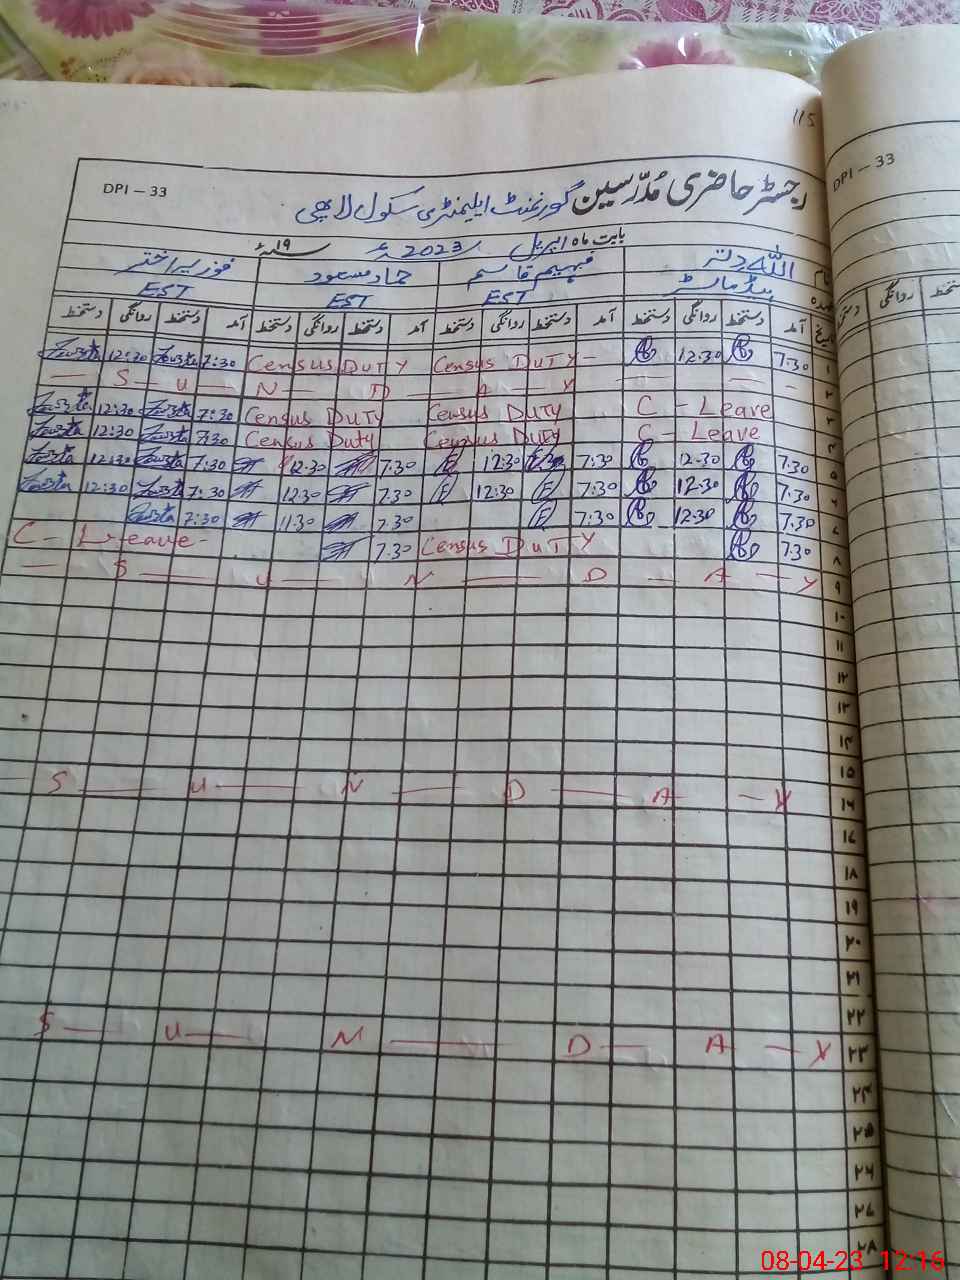 115
DPI – 33
رجسٹر حاضری مُدرّسین گورنمنٹ ایلیمنٹری سکول لاچھی
بابت ماہ اپریل 2023ء سنہ ۱۹ء
اللہ دتہ فہیم قاسم حماد مسعود فوزیہ اختر
ہیڈ ماسٹر EST EST EST
تاریخ آمد دستخط روانگی دستخط آمد دستخط روانگی دستخط آمد دستخط روانگی دستخط آمد دستخط روانگی دستخط
۱ 7:30 12:30 Census DUTY Census DUTY 7:30 Fouzia 12:30 Fouzia
۲ S U N D A Y
۳ C - Leave Census DUTY Census DUTY 7:30 Fouzia 12:30 Fouzia
۴ C - Leave Census DUTY Census Duty 7:30 Fouzia 12:30 Fouzia
۵ 7:30 12:30 7:30 12:30 7:30 12:30 7:30 Fouzia 12:30 Fouzia
۶ 7:30 12:30 7:30 12:30 7:30 12:30 7:30 Fouzia 12:30 Fouzia
۷ 7:30 12:30 7:30 7:30 11:30 7:30 Fouzia
۸ 7:30 Census DUTY 7:30 C - Leave
۹ S U N D A Y
۱۰
۱۱
۱۲
۱۳
۱۴
۱۵
۱۶ S U N D A Y
۱۷
۱۸
۱۹
۲۰
۲۱
۲۲
۲۳ S U N D A Y
۲۴
۲۵
۲۶
۲۷
۲۸
DPI – 33
دستخط روانگی
08-04-23 12:16